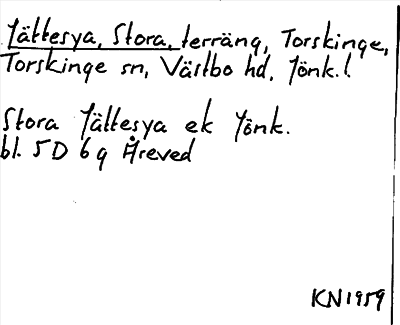 Jättesya, Stora, terräng, Torskinge,
Torskinge sn, Västbo hd, Jönk. l.
Stora Jättesya ek Jönk.
bl. 5D 6g Åreved
KN1959